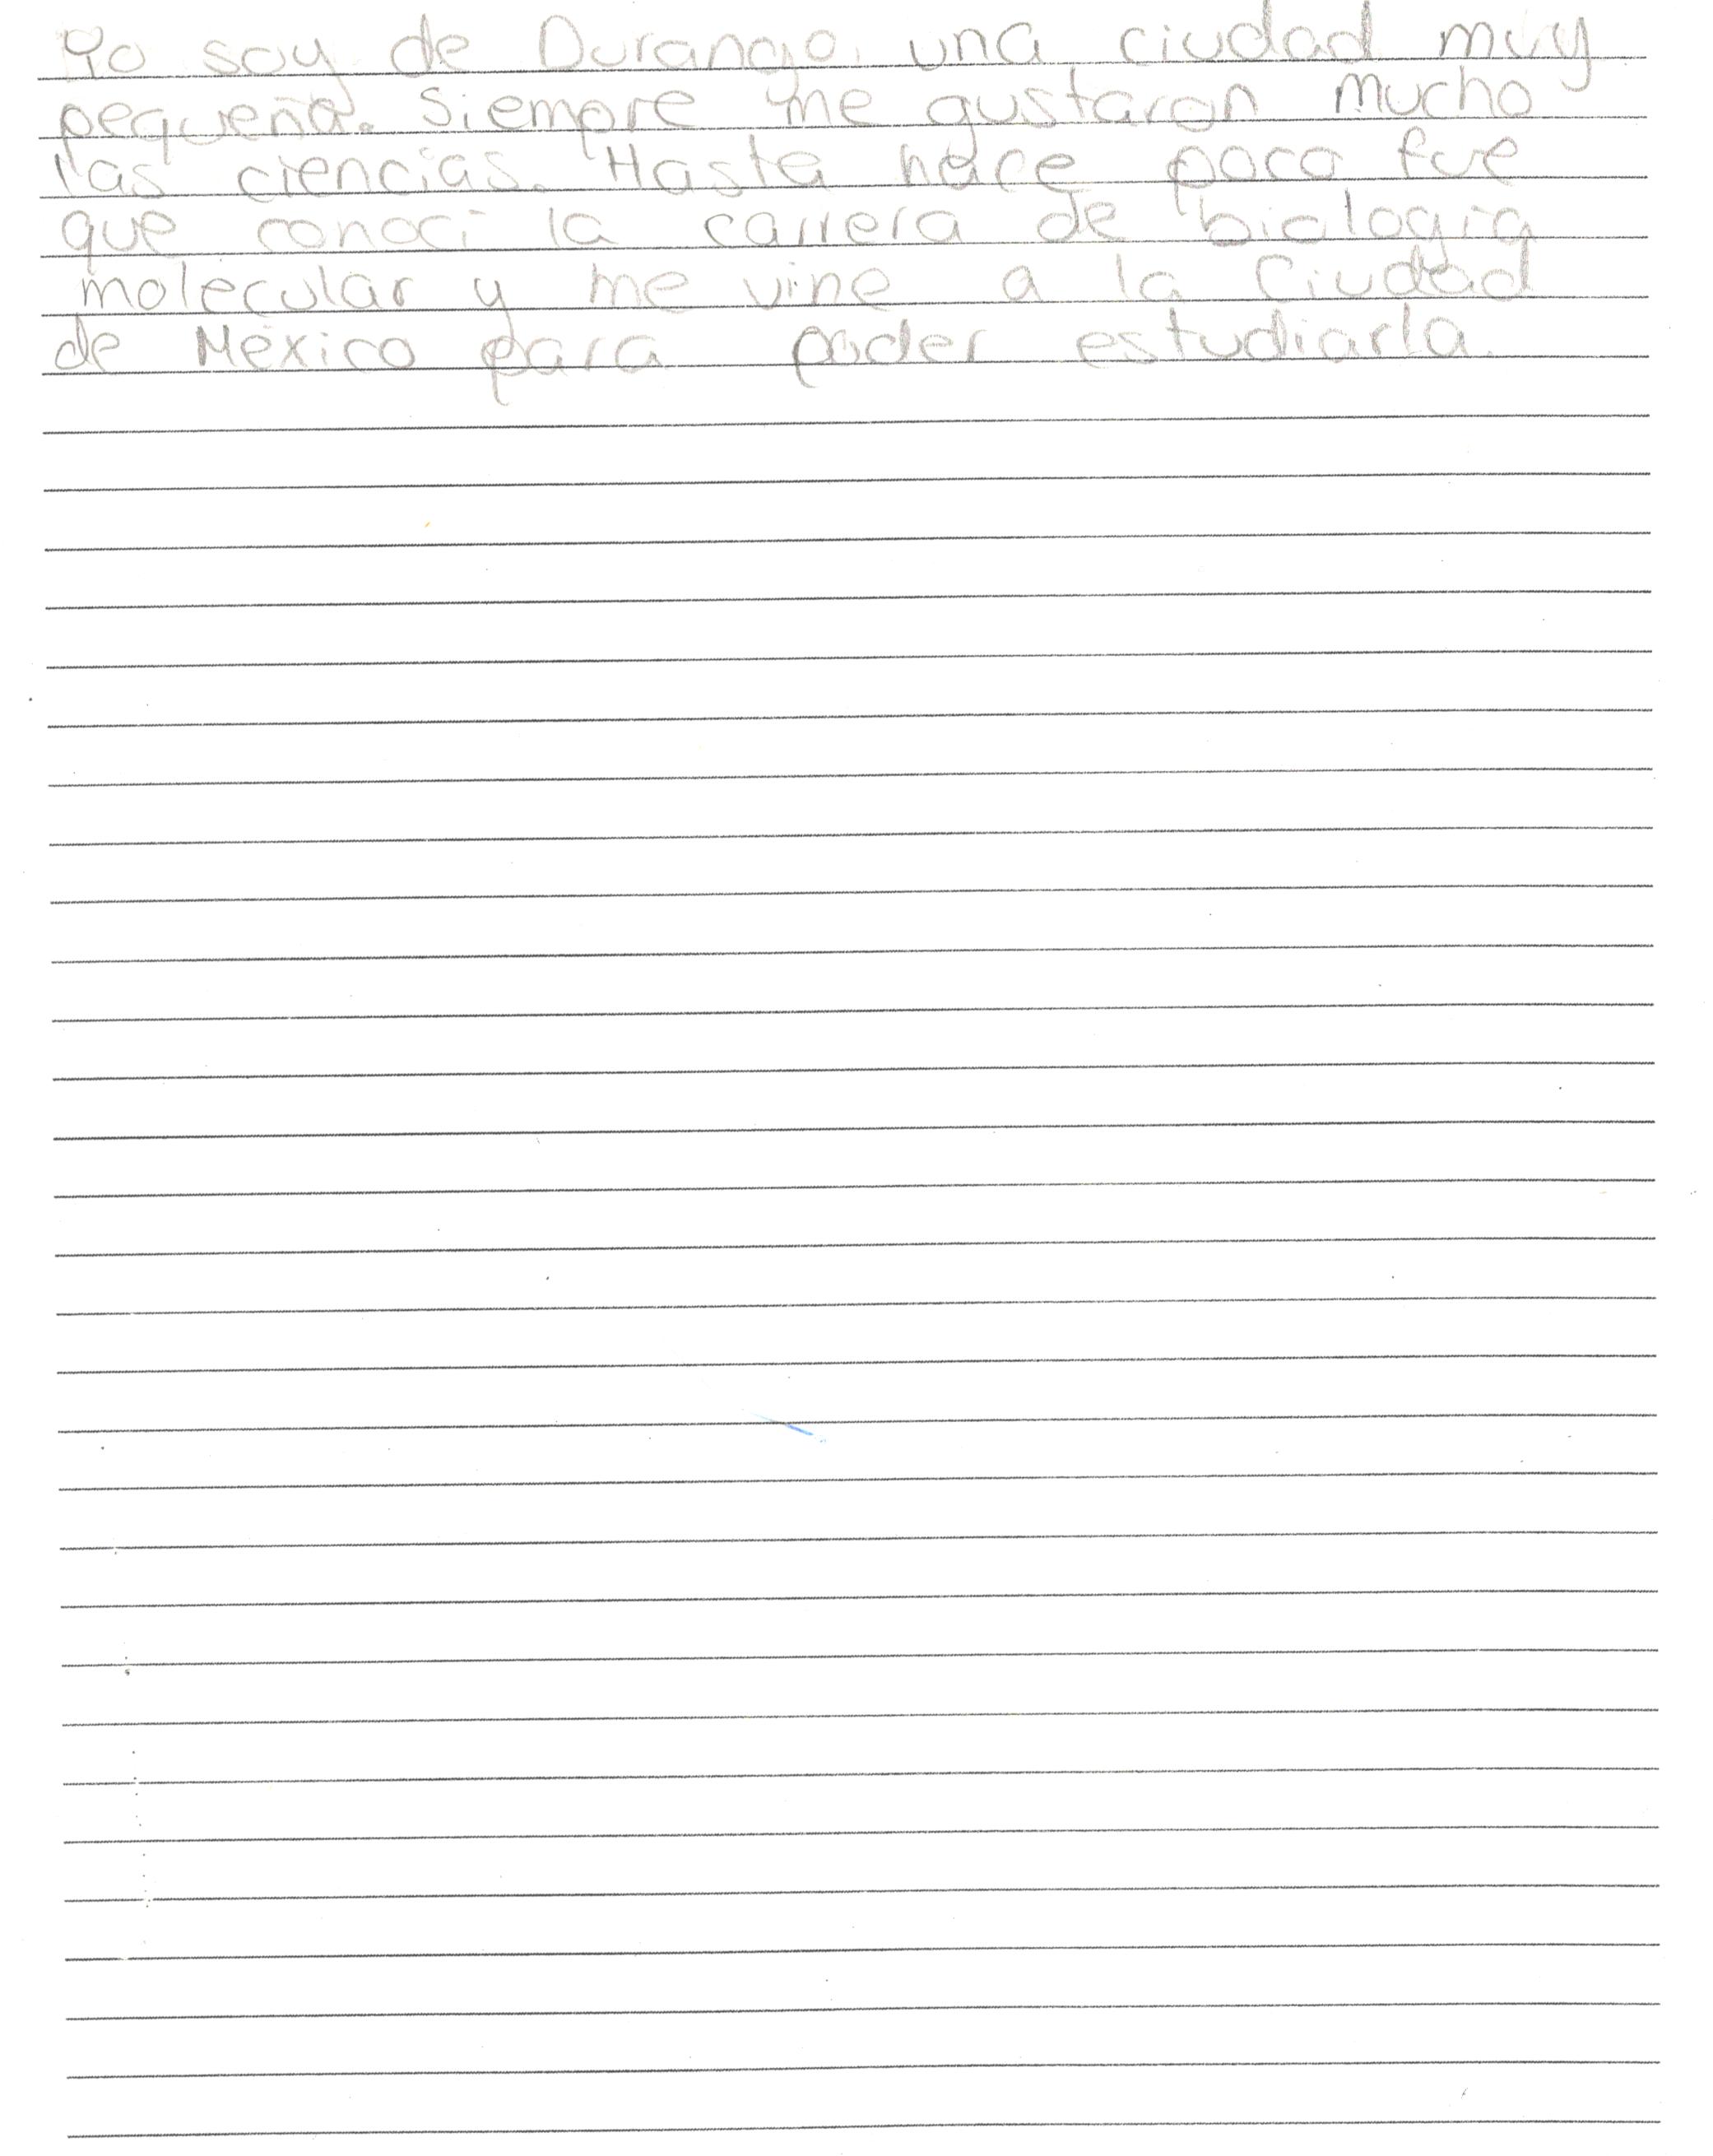 Yo soy de Durango, una ciudad muy
pequeña. Siempre me gustaron mucho
las ciencias. Hasta hace poco fue
que conoci la carrera de biología
molecular y me vine a la Ciudad
de México para poder estudiarla.